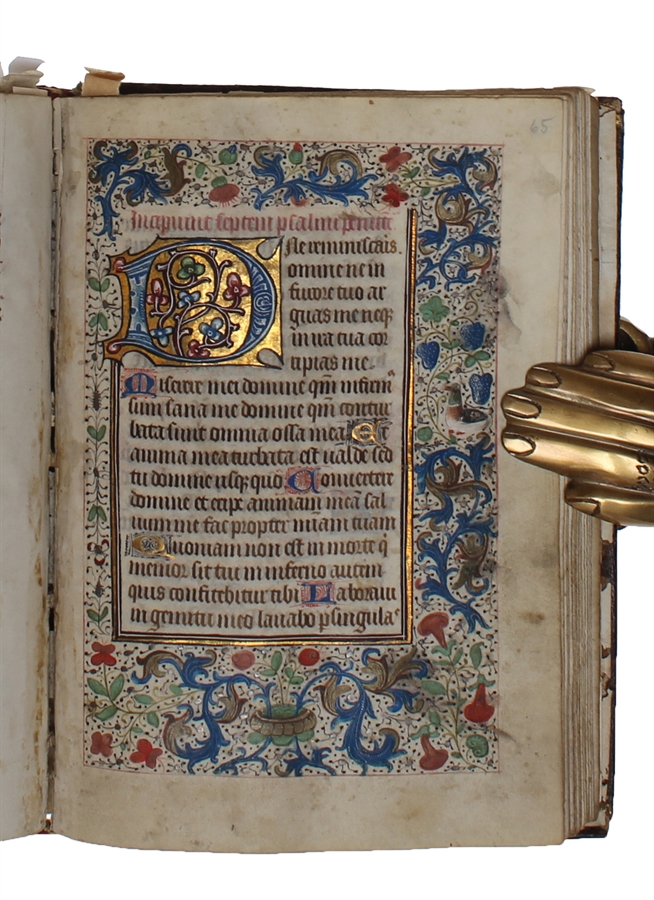 65
Incipiunt septem psalmi penite
Ne reminiscaris.
Domine ne in
furore tuo ar
guas me neqꝫ
in ira tua cor
ripias me
Miserere mei domine qm̄ infirmꝰ
sum sana me domine qm̄ contur
bata sunt omnia ossa mea Et
anima mea turbata est ualde sed
tu domine usq; quo Conuertere
domine et eripe animam meā sal
uum me fac propter mīam tuam
Quoniam non est in morte q̄
memor sit tui in inferno autem
quis confitebitur tibi Laboraui
in gemitu meo lauabo ꝑ singulaˢ